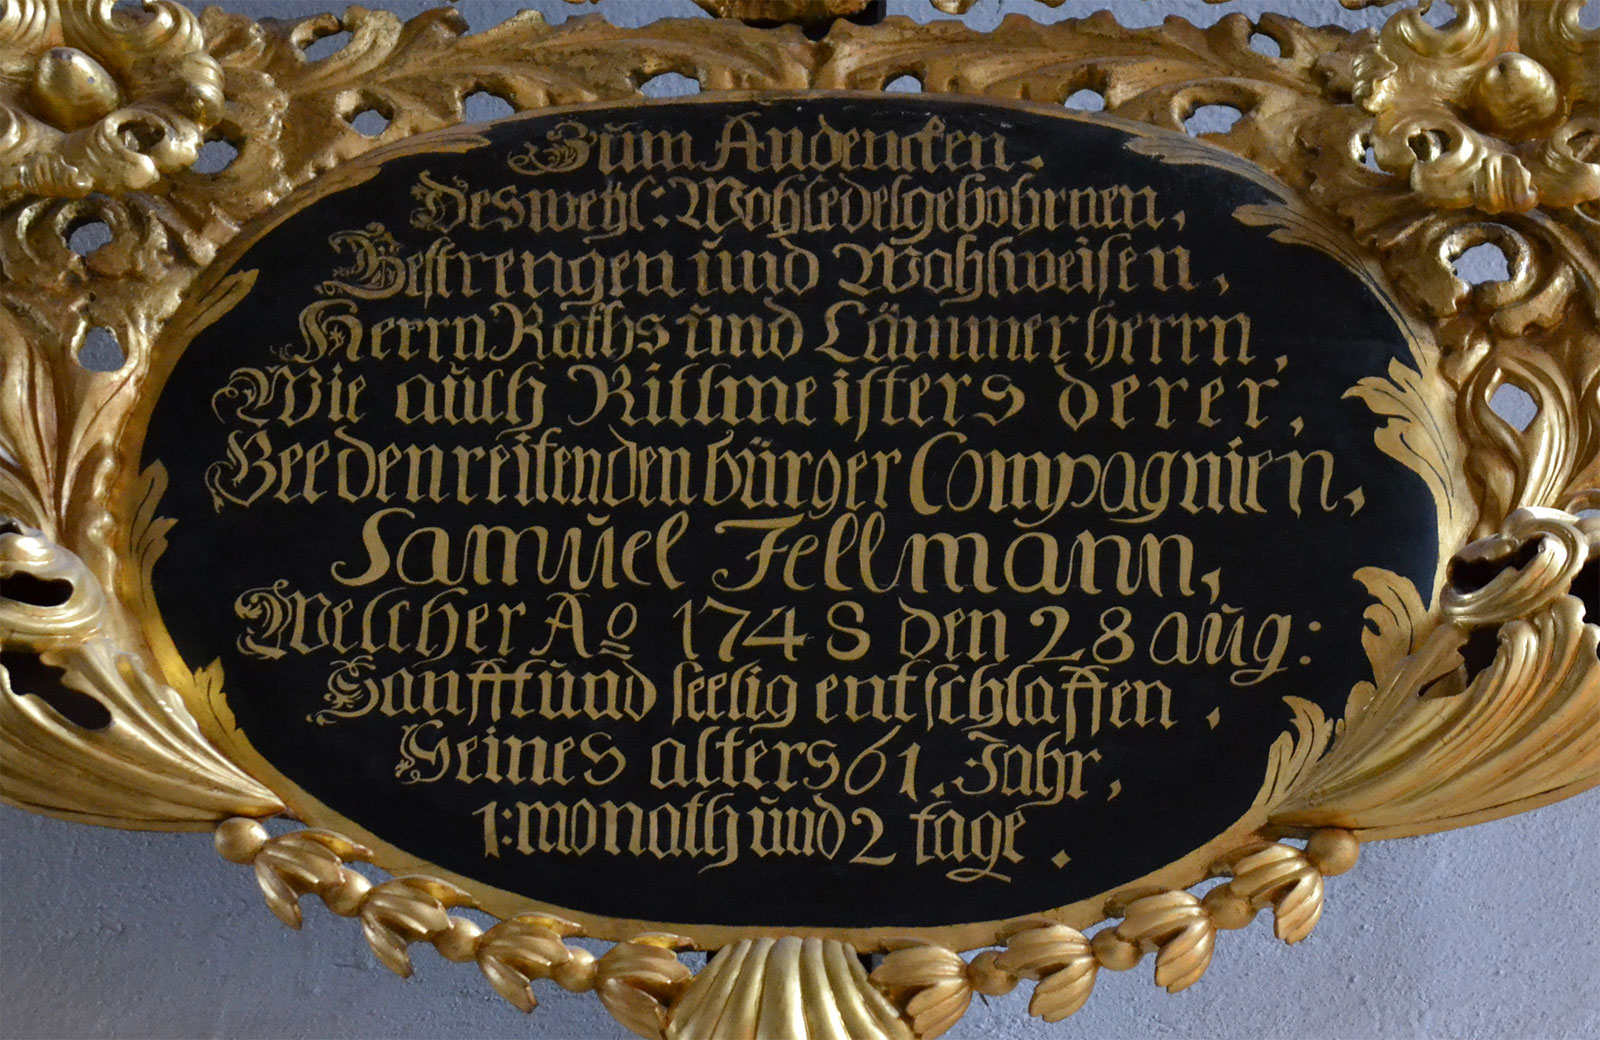 Zum Andencken.
Des weyl: Wohledelgebohrnen,
Gestrengen und Wohlweisen,
Herrn Raths und Cämmerherrn,
Wie auch Rittmeisters derer,
Beeden reitenden bürger Compagnien,
Samuel Fellmann,
Welcher Ao 1748 den 28 aug:
Sanfft und seelig entschlaffen.
Seines alters 61. Jahr,
1: monath und 2 tage.